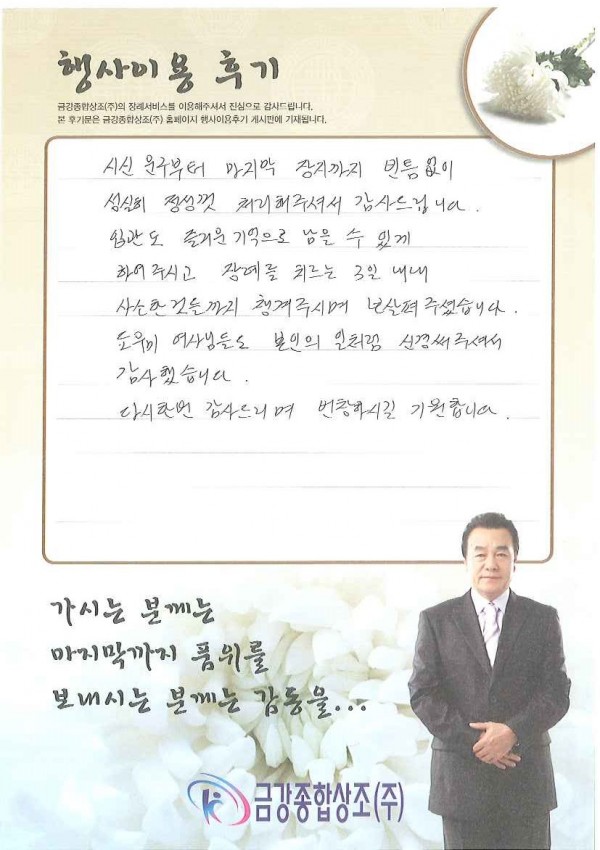 행사이용 후기
금강종합상조(주)의 장례서비스를 이용해주셔서 진심으로 감사드립니다.
본 후기문은 금강종합상조(주) 홈페이지 행사이용후기 게시판에 기재됩니다.
시신 운구부터 마지막 장지까지 빈틈없이
성실히 정성껏 처리해주셔서 감사드립니다.
입관도 즐거운 기억으로 남을 수 있게
하여 주시고 장례를 치르는 3일 내내
사소한것들까지 챙겨주시며 보살펴주셨습니다.
도우미 여사님들도 본인의 일처럼 신경써주셔서
감사했습니다.
다시한번 감사드리며 번창하시길 기원합니다.
가시는 분께는
마지막까지 품위를
보내시는 분께는 감동을...
금강종합상조(주)